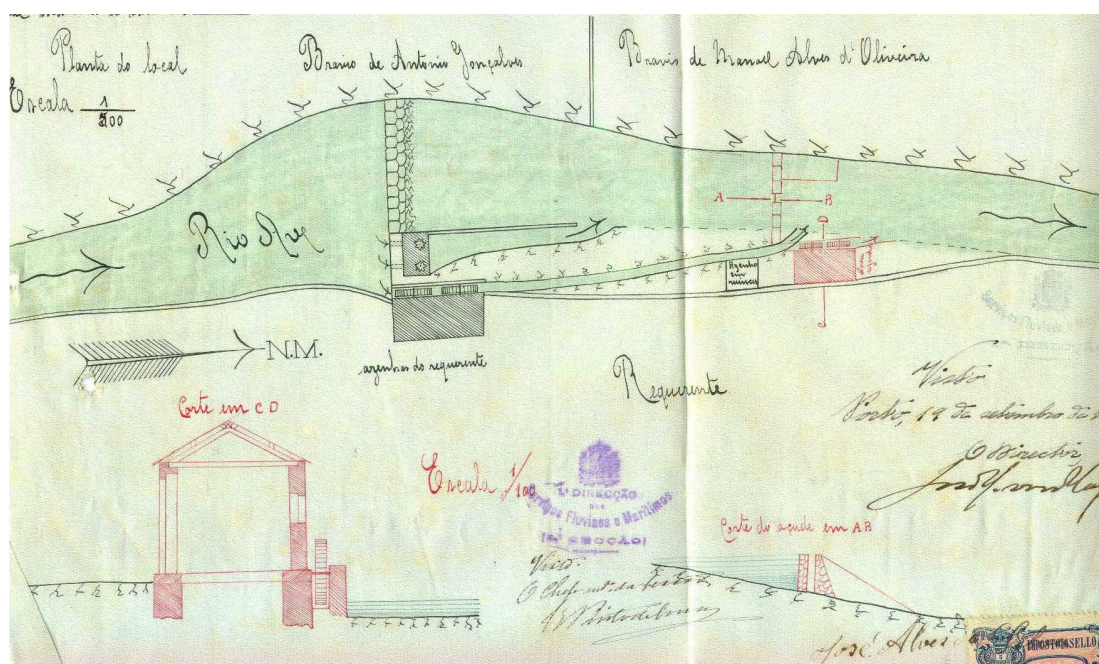 Planta do local
Escala 1/500
Bravio de Antonio Gonçalves
Bravio de Manoel Alves d'Oliveira
Rio Ave
A
B
D
C
Azenha em ruinas
N.M.
azenhas do requerente
Requerente
Visto
Porto, 19 de setembro de
O Director
Corte em CD
Escala 1/100
1ª DIRECÇÃO
DOS
Serviços Fluviaes e Maritimos
SECÇÃO
Visto.
O Chefe da secção
Corte do açude em AB
José Alves
IMPOSTO DO SELLO